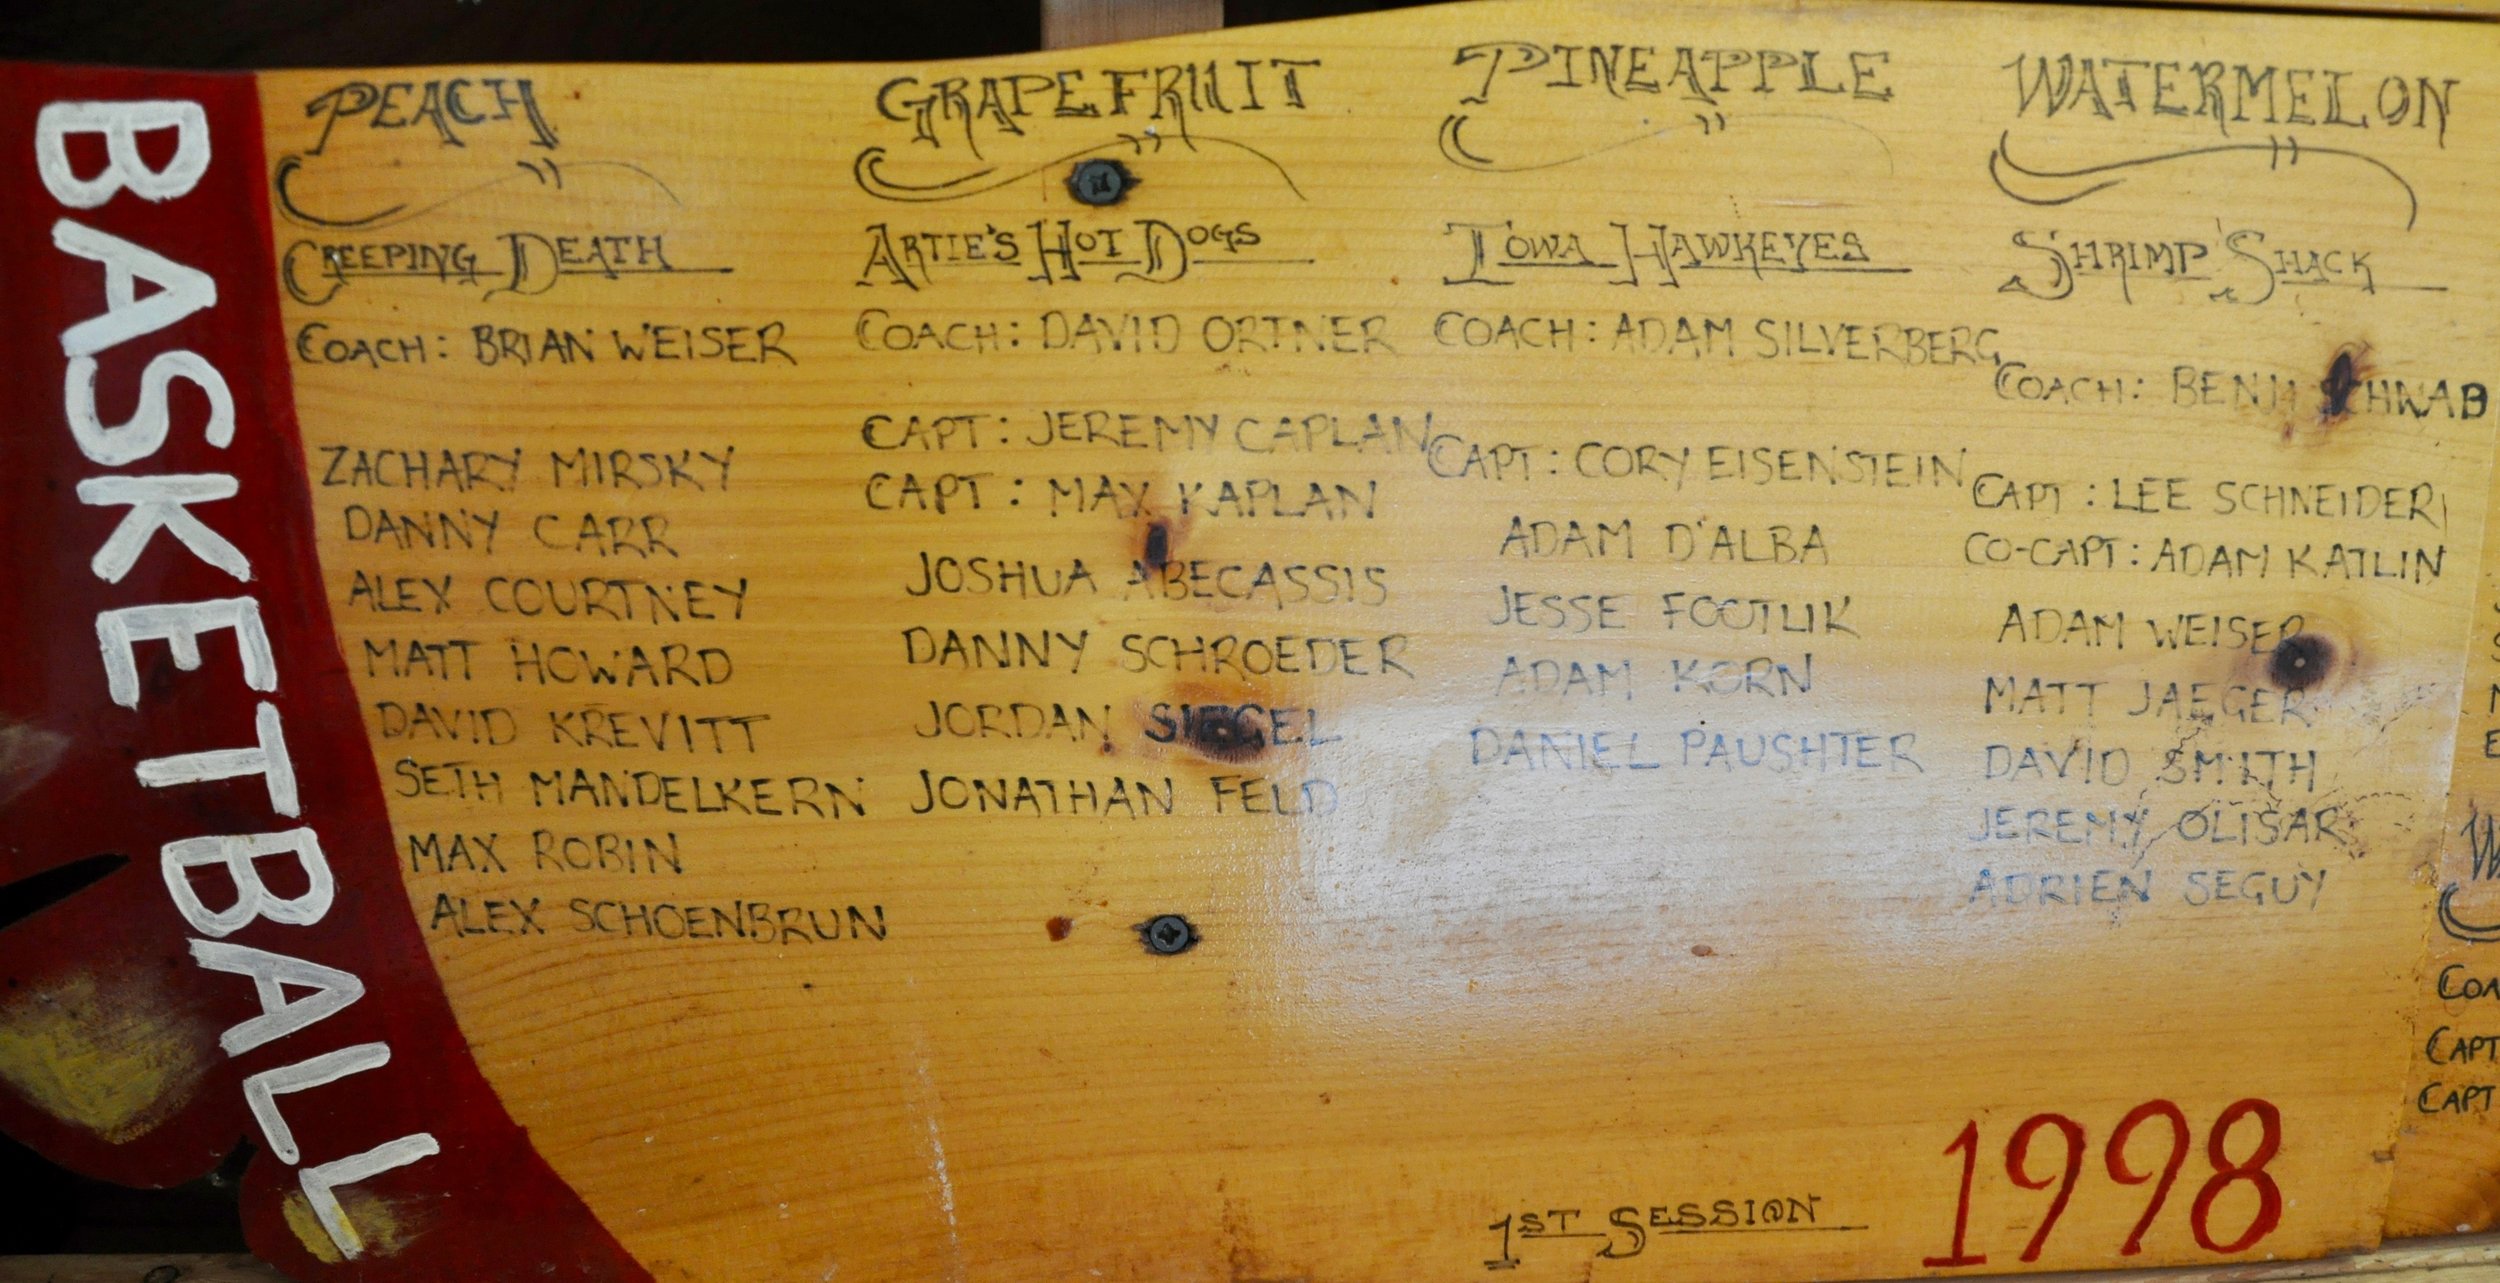 BASKETBALL
PEACH
CREEPING DEATH
COACH: BRIAN WEISER
ZACHARY MIRSKY
DANNY CARR
ALEX COURTNEY
MATT HOWARD
DAVID KREVITT
SETH MANDELKERN
MAX ROBIN
ALEX SCHOENBRUN
GRAPEFRUIT
ARTIE'S HOT DOGS
COACH: DAVID ORTNER
CAPT: JEREMY CAPLAN
CAPT: MAX KAPLAN
JOSHUA ABECASSIS
DANNY SCHROEDER
JORDAN SIEGEL
JONATHAN FELD
PINEAPPLE
IOWA HAWKEYES
COACH: ADAM SILVERBERG
CAPT: CORY EISENSTEIN
ADAM D'ALBA
JESSE FOOTLIK
ADAM KORN
DANIEL PAUSHTER
WATERMELON
SHRIMP SHACK
COACH: BENJI SCHWAB
CAPT: LEE SCHNEIDER
CO-CAPT: ADAM KATLIN
ADAM WEISER
MATT JAEGER
DAVID SMITH
JEREMY OLISAR
ADRIEN SEGUY
CAPT
CAPT
1ST SESSION
1998